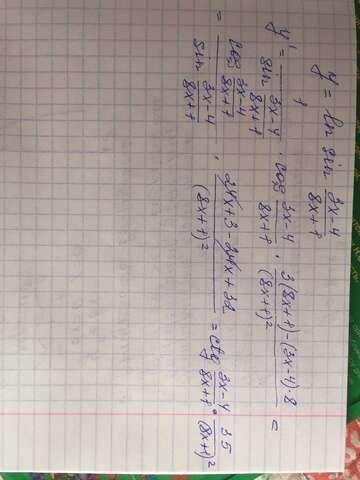 y = ln sin (3x-4)/(8x+1)
y' = 1/(sin (3x-4)/(8x+1)) · cos (3x-4)/(8x+1) · (3(8x+1)-(3x-4)·8)/(8x+1)² =
= (cos (3x-4)/(8x+1))/(sin (3x-4)/(8x+1)) · (24x+3-24x+32)/(8x+1)² = ctg (3x-4)/(8x+1) · 35/(8x+1)²